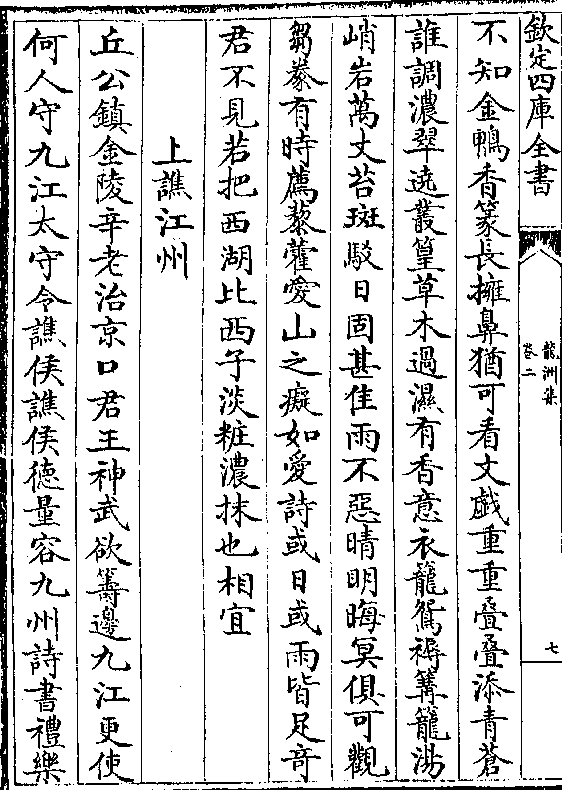 欽定四庫全書
龍洲集
卷二
七
不知金鴨香篆長擁鼻猶可看丈戯重重疊疊添青蒼
誰調濃翠遶叢篁草木過濕有香意衣籠鴛褥篝籠湯
峭岩萬丈苔斑駁日固甚佳雨不惡晴明晦冥俱可觀
芻豢有時薦藜藿愛山之癡如愛詩或日或雨皆足竒
君不見若把西湖比西子淡粧濃抹也相宜
上譙江州
丘公鎮金陵辛老治京口君王神武欲籌邊九江更使
何人守九江太守令譙侯譙侯徳量容九州詩書禮樂